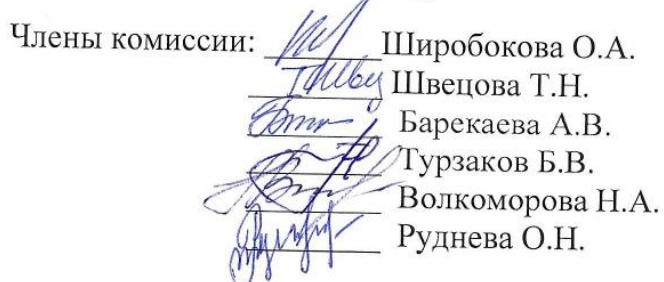 Члены комиссии: Широбокова О.А.
Швецова Т.Н.
Барекаева А.В.
Турзаков Б.В.
Волкоморова Н.А.
Руднева О.Н.